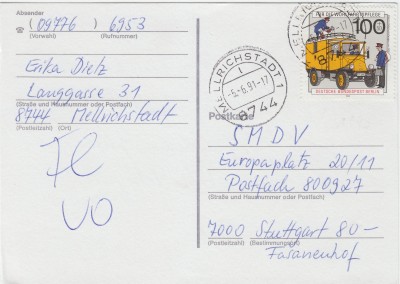 Absender
(09776) 6953
(Vorwahl) (Rufnummer)
Erika Dietz
Langgasse 31
(Straße und Hausnummer oder Postfach)
8744 Mellrichstadt
(Postleitzahl) (Ort)
MELLRICHSTADT 1
-5.-6.91-17
8744
FÜR DIE WOHLFAHRTSPFLEGE
100
DEUTSCHE BUNDESPOST BERLIN
Postkarte
SMDV
Europaplatz 20/11
Postfach 800927
(Straße und Hausnummer oder Postfach)
7000 Stuttgart 80-
Fasanenhof
(Postleitzahl) (Bestimmungsort)